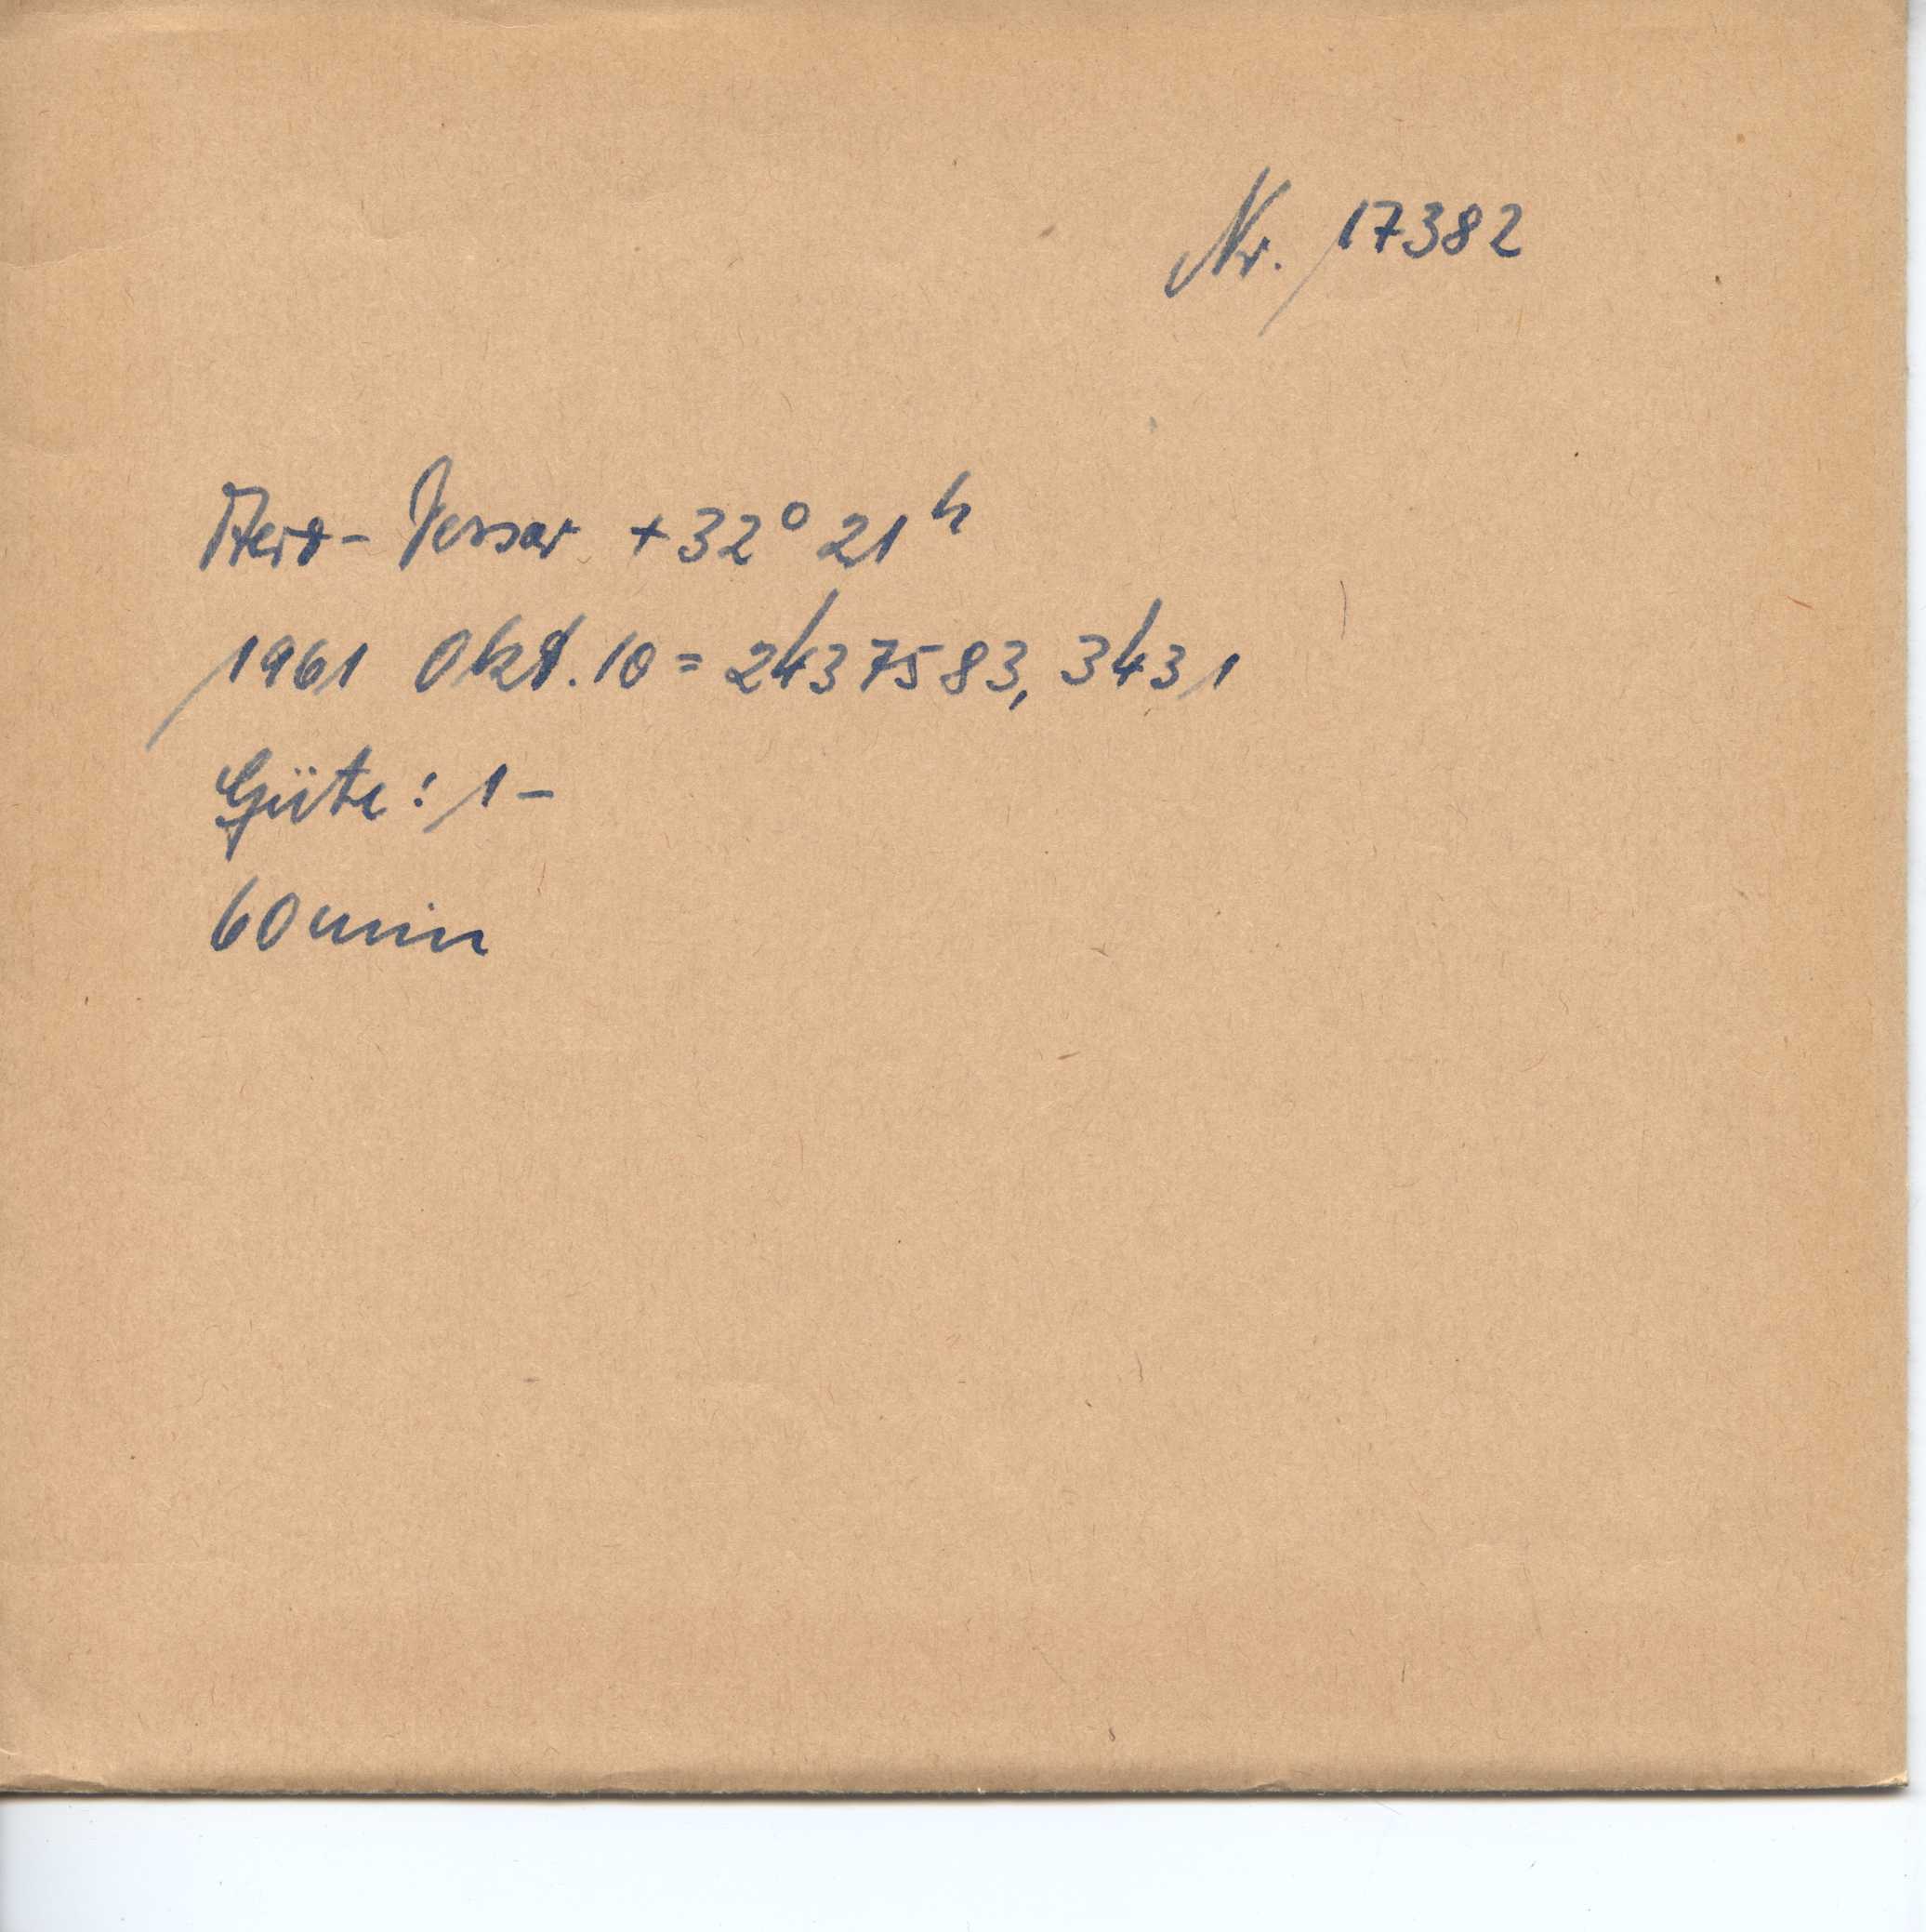 Nr. 17382
Aero-Tessar +32° 21ʰ
1961 Okt. 10 = 2437583,3431
Güte: 1-
60 min